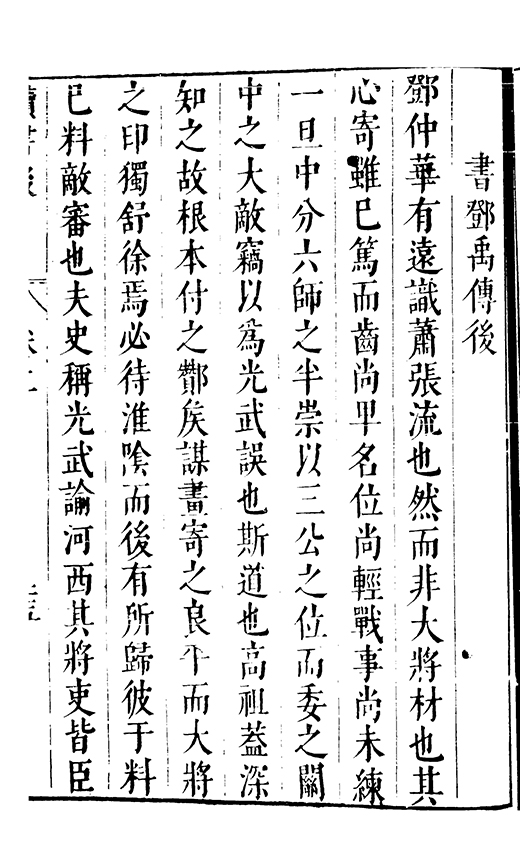 書鄧禹傳後
鄧仲華有遠識蕭張流也然而非大將材也其
心寄雖已篤而齒尚早名位尚輕戰事尚未練
一旦中分六師之半崇以三公之位而委之關
中之大敵竊以爲光武誤也斯道也高祖蓋深
知之故根本付之酇矦謀畫寄之良平而大將
之印獨舒徐焉必待淮陰而後有所歸彼于料
已料敵審也夫史稱光武諭河西其將吏皆臣
讀書後 卷二